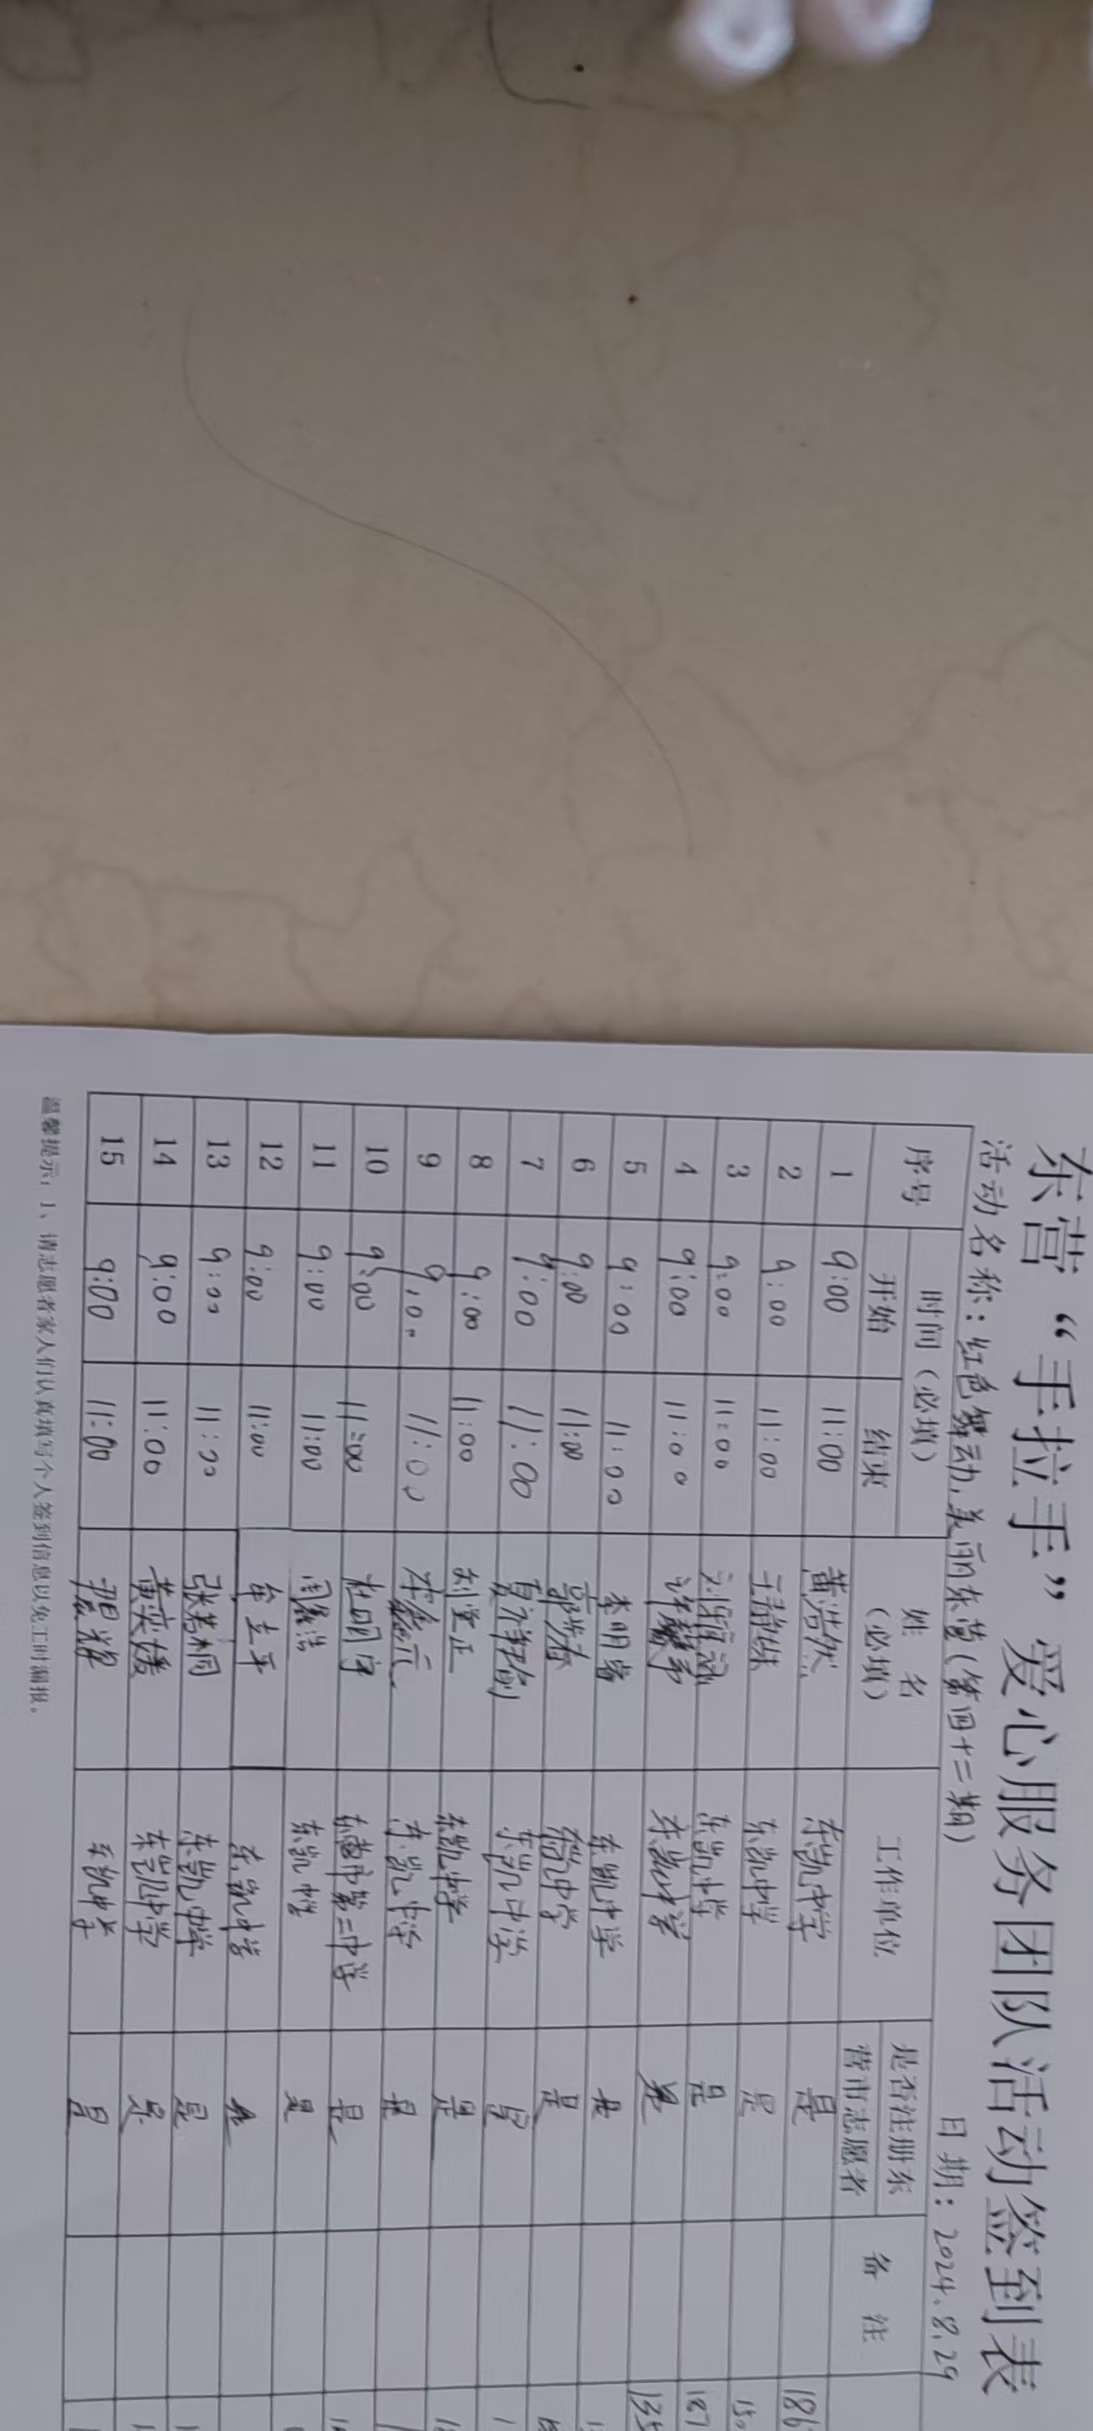 东营“手拉手”爱心服务团队活动签到表
活动名称：红色舞动，美丽东营（第四十二期） 日期：2024.8.29
序号 时间（必填） 姓名（必填） 工作单位 是否注册东营市志愿者 备注
开始 结束
1 9:00 11:00 黄浩然 东凯中学 是 186
2 9:00 11:00 东凯中学 是 150
3 9:00 11:00 东凯中学 是 187
4 9:00 11:00 东凯中学 是 135
5 9:00 11:00 李明 东凯中学 是
6 9:00 11:00 东凯中学 是
7 9:00 11:00 东凯中学 是
8 9:00 11:00 东凯中学 是
9 9:00 11:00 东凯中学 是
10 9:00 11:00 杜明 第二中学 是
11 9:00 11:00 东凯中学 是
12 9:00 11:00 东凯中学
13 9:00 11:00 东凯中学 是
14 9:00 11:00 东凯中学 是
15 9:00 11:00 东凯中学 是
温馨提示：1、请志愿者家人们认真填写个人签到信息以免工时漏报。